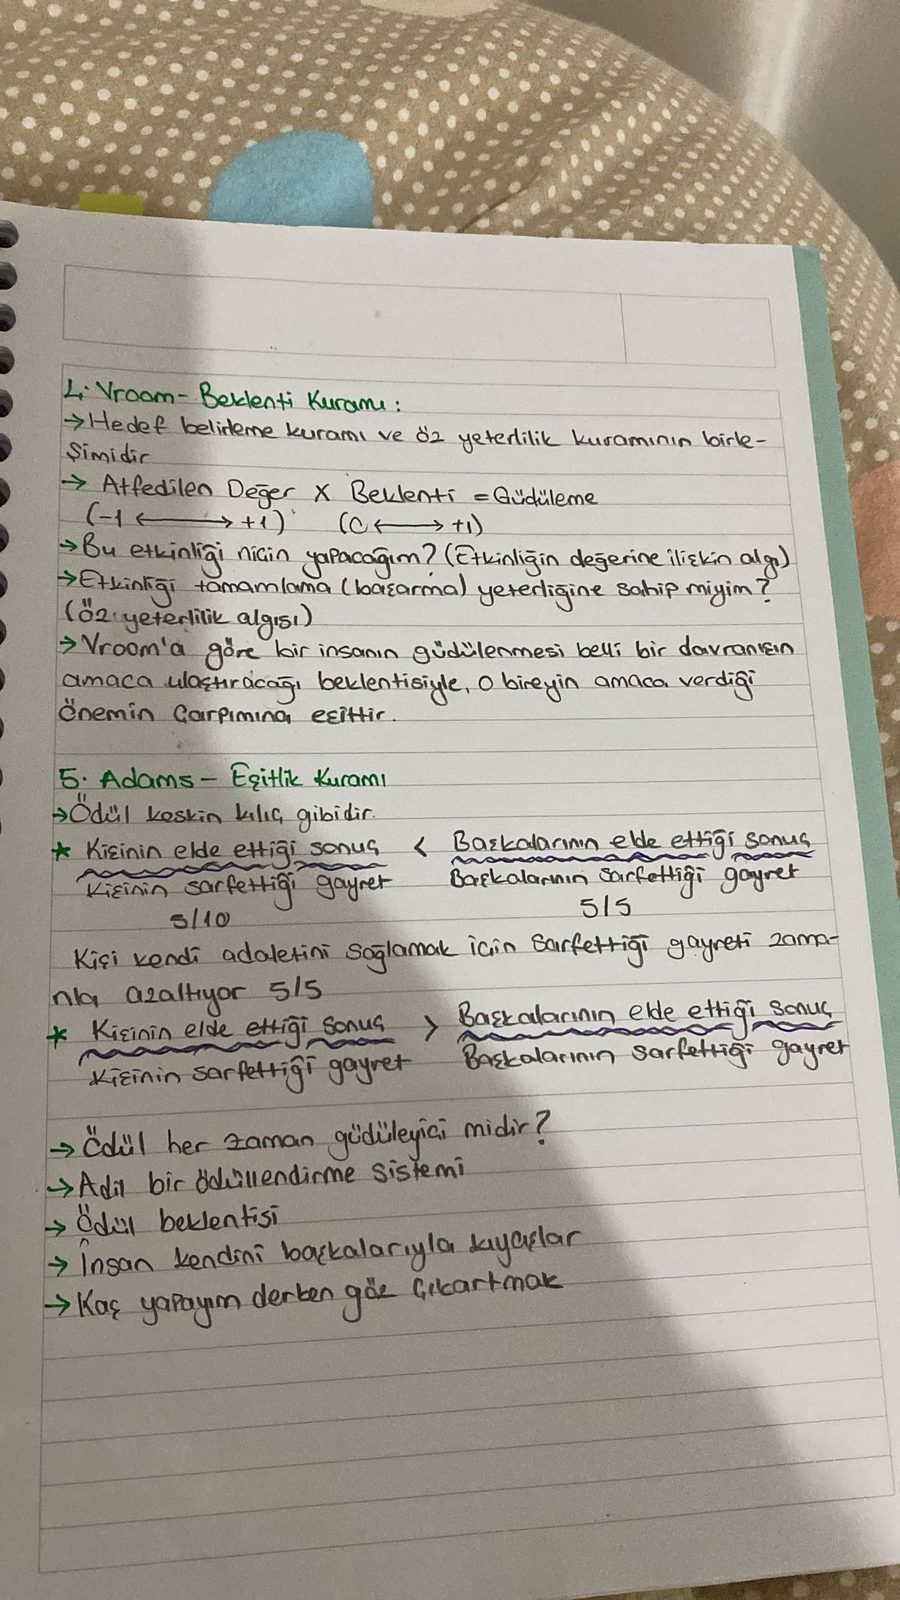 4. Vroom - Beklenti Kuramı :
→ Hedef belirleme kuramı ve öz yeterlilik kuramının birle-
şimidir
→ Atfedilen Değer X Beklenti = Güdüleme
(-1 ←→ +1) (0 ←→ +1)
→ Bu etkinliği niçin yapacağım? (Etkinliğin değerine ilişkin algı)
→ Etkinliği tamamlama (başarma) yeterliğine sahip miyim?
(Öz yeterlilik algısı)
→ Vroom'a göre bir insanın güdülenmesi belli bir davranışın
amaca ulaştıracağı beklentisiyle, o bireyin amaca verdiği
önemin çarpımına eşittir.
5. Adams - Eşitlik Kuramı
→ Ödül keskin kılıç gibidir.
* Kişinin elde ettiği sonuç < Başkalarının elde ettiği sonuç
Kişinin sarfettiği gayret Başkalarının sarfettiği gayret
5/10 5/5
Kişi kendi adaletini sağlamak için sarfettiği gayreti zama-
nla azaltıyor 5/5
* Kişinin elde ettiği sonuç > Başkalarının elde ettiği sonuç
Kişinin sarfettiği gayret Başkalarının sarfettiği gayret
→ Ödül her zaman güdüleyici midir?
→ Adil bir ödüllendirme sistemi
→ Ödül beklentisi
→ İnsan kendini başkalarıyla kıyaslar
→ Kaş yapayım derken göz çıkartmak